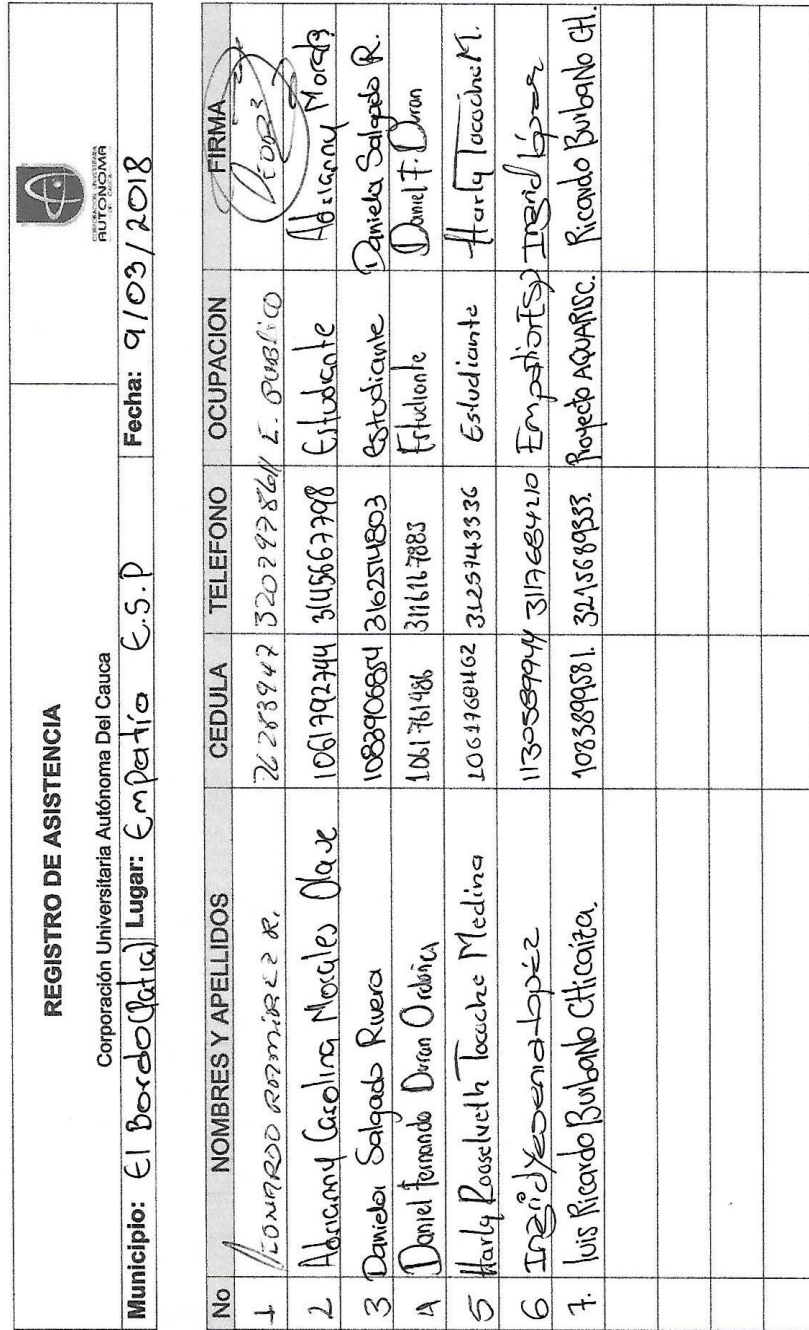 REGISTRO DE ASISTENCIA
Corporación Universitaria Autónoma Del Cauca
CORPORACIÓN UNIVERSITARIA
AUTÓNOMA
DEL CAUCA
Municipio: El Bordo (Patía) Lugar: Empatía E.S.P Fecha: 9/03/2018
No NOMBRES Y APELLIDOS CEDULA TELEFONO OCUPACION FIRMA
1 LEONARDO RAMIREZ R. 76283947 E. PUBLICO
2 Adrianny Carolina Morales Olave 1061792744 3145667798 Estudiante Adrianny Morales
3 Daniela Salgado Rivera 1083906854 3162514803 estudiante Daniela Salgado R.
4 Daniel Fernando Duran Ordoñez 1061761486 3116167883 Estudiante Daniel F. Duran
5 Harly Rooselveth Tacuche Medina 1061768462 3125743336 Estudiante Harly Tacuche M.
6 Ingrid Yesenia López 1130589944 3117684210 Ingrid López
7. luis Ricardo Burbano CHicaiza. 1083899581. 3215689333. Proyecto AQUARISC. Ricardo Burbano CH.